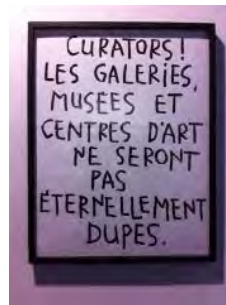 CURATORS!
LES GALERIES,
MUSÉES ET
CENTRES D'ART
NE SERONT
PAS
ÉTERNELLEMENT
DUPES.